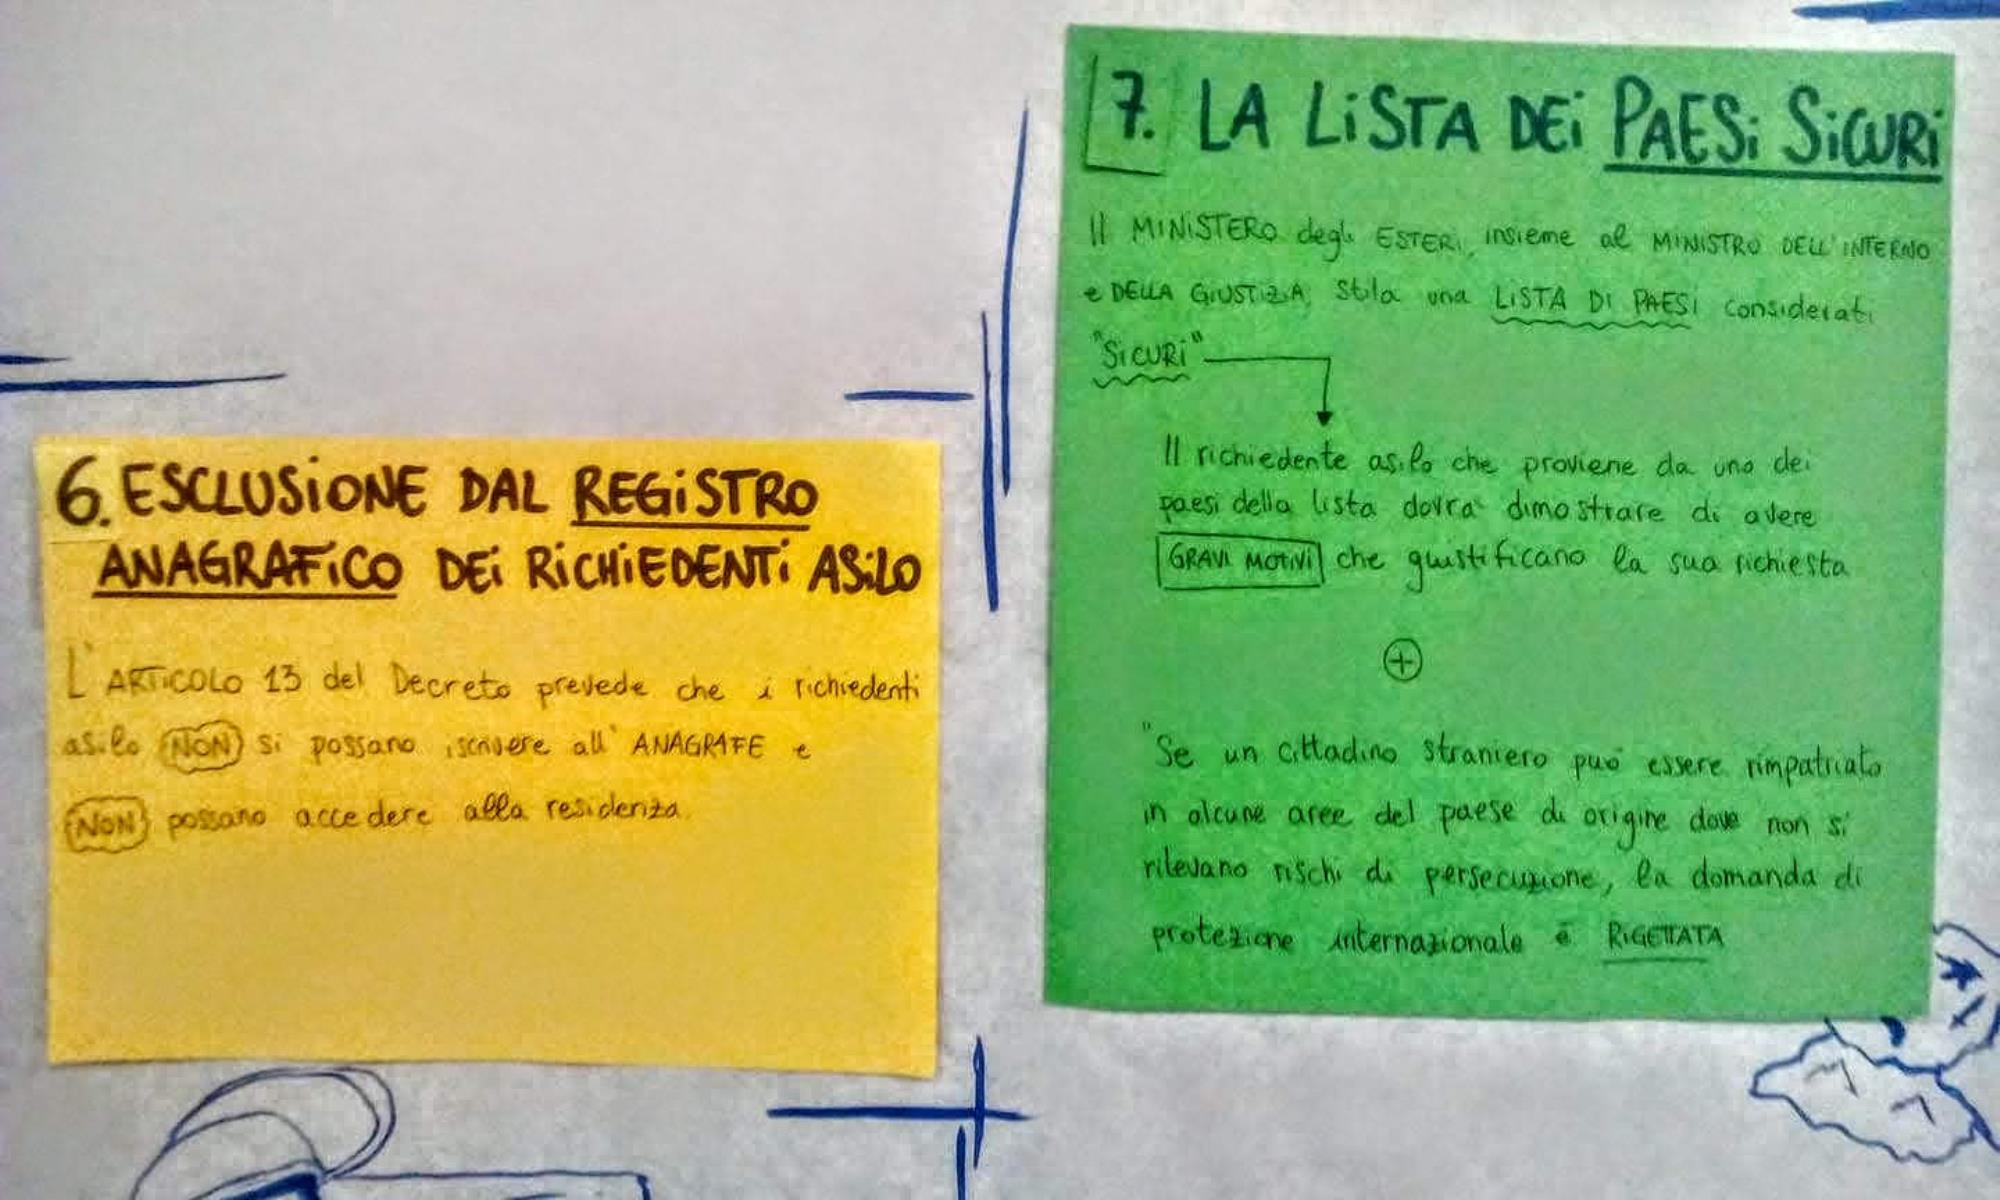 6. ESCLUSIONE DAL REGISTRO
ANAGRAFICO DEI RICHIEDENTI ASILO
L'ARTICOLO 13 del Decreto prevede che i richiedenti
asilo NON si possano iscrivere all'ANAGRAFE e
NON possano accedere alla residenza.
7. LA LISTA DEI PAESI SICURI
Il MINISTERO degli ESTERI, insieme al MINISTRO DELL'INTERNO
e DELLA GIUSTIZIA, stila una LISTA DI PAESI considerati
"SICURI"
Il richiedente asilo che proviene da uno dei
paesi della lista dovrà dimostrare di avere
GRAVI MOTIVI che giustificano la sua richiesta
+
"Se un cittadino straniero può essere rimpatriato
in alcune aree del paese di origine dove non si
rilevano rischi di persecuzione, la domanda di
protezione internazionale è RIGETTATA